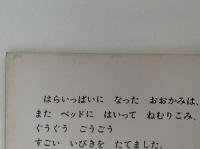 はらいっぱいに なった おおかみは、
また ベッドに はいって ねむりこみ、
ぐうぐう ごうごう
すごい いびきを たてました。